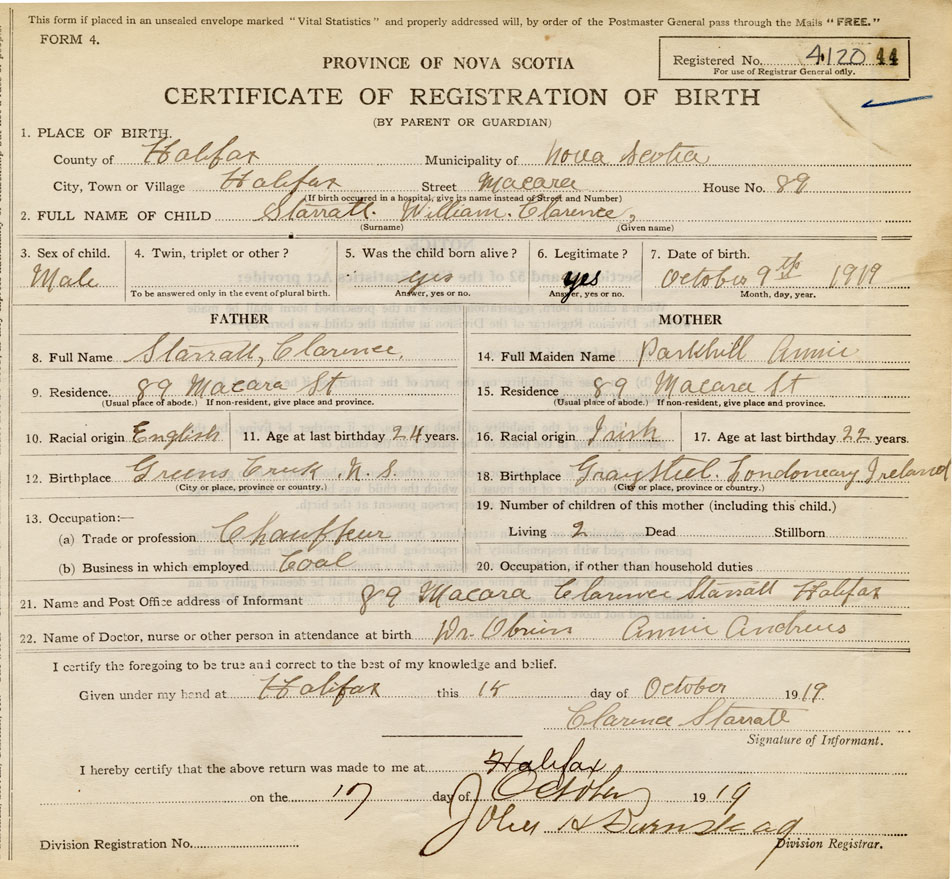 This form if placed in an unsealed envelope marked "Vital Statistics" and properly addressed will, by order of the Postmaster General pass through the Mails "FREE."
FORM 4.
Registered No. 4120 44
For use of Registrar General only.
PROVINCE OF NOVA SCOTIA
CERTIFICATE OF REGISTRATION OF BIRTH
(BY PARENT OR GUARDIAN)
1. PLACE OF BIRTH.
County of Halifax Municipality of Nova Scotia
City, Town or Village Halifax Street Macara House No. 89
(If birth occurred in a hospital, give its name instead of Street and Number)
2. FULL NAME OF CHILD Starratt. William. Clarence,
(Surname) (Given name)
3. Sex of child. 4. Twin, triplet or other? 5. Was the child born alive? 6. Legitimate? 7. Date of birth.
Male yes yes October 9th 1919
To be answered only in the event of plural birth. Answer, yes or no. Answer, yes or no. Month, day, year.
FATHER MOTHER
8. Full Name Starratt, Clarence. 14. Full Maiden Name Parkhill Annie
9. Residence. 89 Macara St 15. Residence 89 Macara St
(Usual place of abode.) If non-resident, give place and province. (Usual place of abode.) If non-resident, give place and province.
10. Racial origin English 11. Age at last birthday 24 years. 16. Racial origin Irish 17. Age at last birthday 22 years.
12. Birthplace Greens Creek N. S. 18. Birthplace Ireland
(City or place, province or country.) (City or place, province or country.)
19. Number of children of this mother (including this child.)
13. Occupation:—
(a) Trade or profession Chauffeur Living 2 Dead Stillborn
(b) Business in which employed Coal 20. Occupation, if other than household duties
21. Name and Post Office address of Informant 89 Macara Clarence Starratt Halifax
22. Name of Doctor, nurse or other person in attendance at birth Dr. Obrien Annie Andrews
I certify the foregoing to be true and correct to the best of my knowledge and belief.
Given under my hand at Halifax this 15 day of October 1919
Clarence Starratt
Signature of Informant.
I hereby certify that the above return was made to me at Halifax
on the 17 day of October 1919
John A
Division Registration No. Division Registrar.